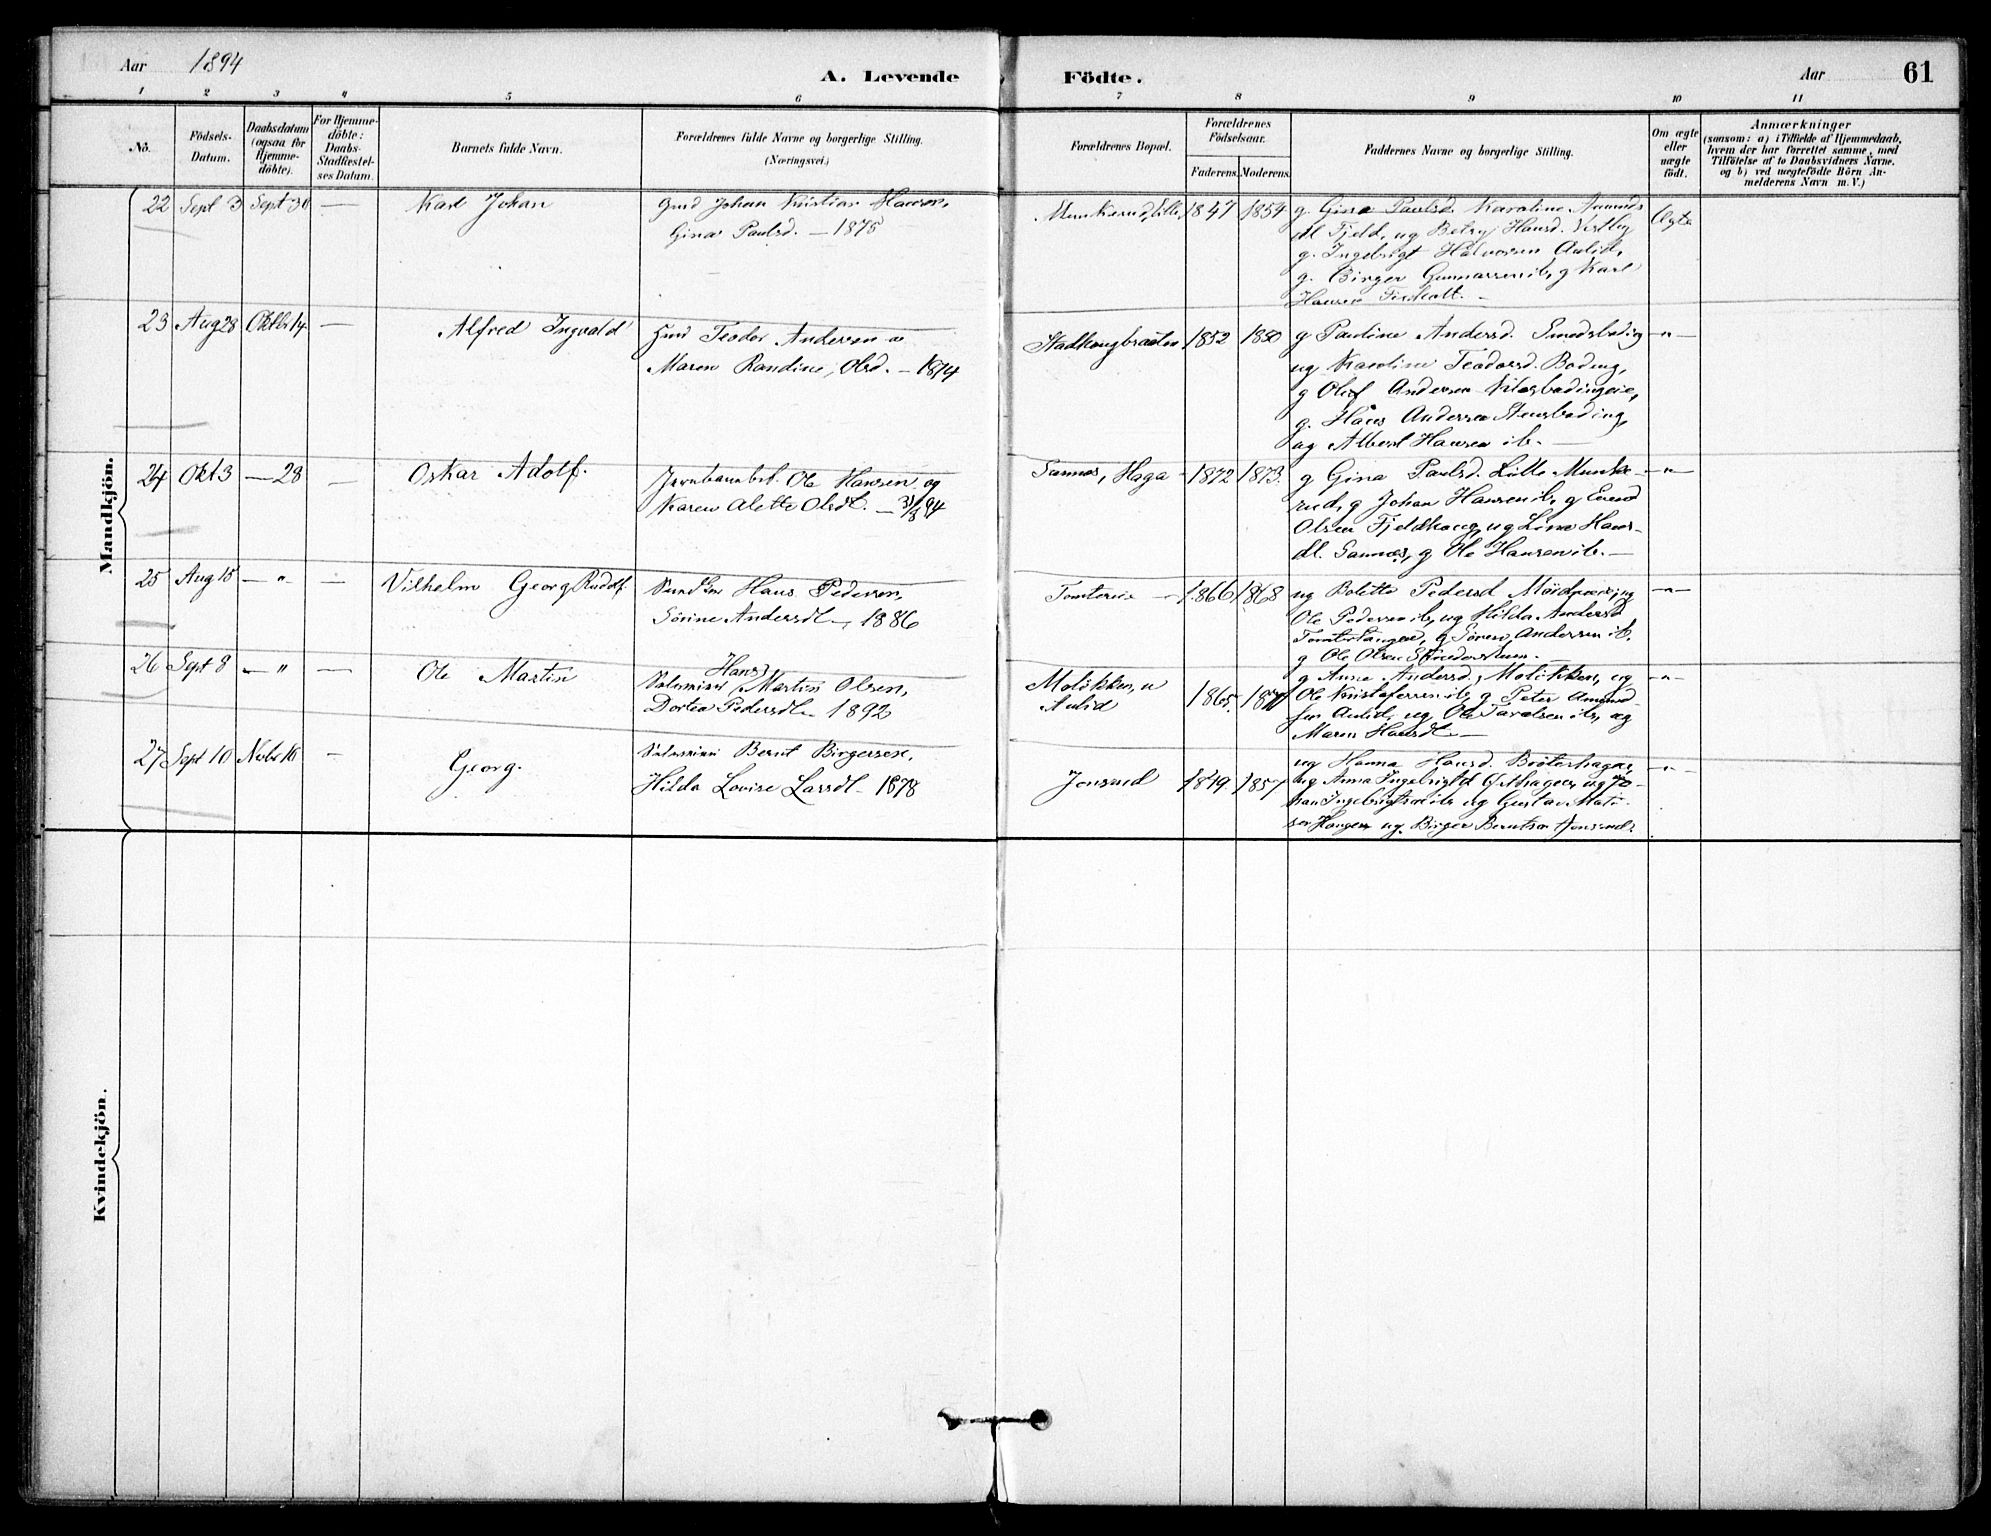 Aar 1894
A. Levende
Födte.
Aar
61
1 2 3 4 5 6 7 8 9 10 11
No.
Födsels-
Datum.
Daabsdatum
(ogsaa for
Hjemme-
döbte).
For Hjemme-
döbte:
Daabs-
Stadfæstel-
ses Datum.
Barnets fulde Navn.
Forældrenes fulde Navne og borgerlige Stilling.
(Næringsvei.)
Forældrenes Bopæl.
Forældrenes
Födselsaar.
Faderens. Moderens.
Faddernes Navne og borgerlige Stilling.
Om ægte
eller
uægte
födt.
Anmærkninger
(saasom: a) i Tilfælde af Hjemmedaab,
hvem der har forrettet samme, med
Tilföielse af to Daabsvidners Navne.
og b) ved uægtefödte Börn An-
melderens Navn m. V.)
Mandkjön.
22 Sept 3 Sept 30 — Karl Johan
Gmd Johan Kristian Hansen,
Gina Paulsd. — 1875
Munkerud, Lille 1847 1854
g. Gina Paulsd. Karoline Amunds
dl Fjeld, ug Betzy Hansd. Vestby
g. Ingebrigt Halvorsen Aulid,
g. Birger Gunnarsen ib, g Karl
Hansen
Ægte
23 Aug 28 Oktbr 14 — Alfred Ingvald
Gmd Teodor Andersen o
Maren Randine Olsd. — 1874
1852 1850
g Pauline Andersd.
ug Karoline Teodorsd. Boding,
g Oluf Andersen
g. Hans Andersen
ug Albert Hansen ib. —
— " —
24 Okt 3 — 28 — Oskar Adolf.
Jernbanebet. Ole Hansen og
Karen Alette Olsdt. — 31/3 94
Sannes, Haga 1872 1873.
g Gina Paulsd. Lille Munke-
rud, g Johan Hansen ib, g Evend
Olsen Fjeldhaug, ug Lina Hans-
dl. Sannes, g Ole Hansen ib. —
— " —
25 Aug 15 — " — — Vilhelm Georg Rudolf
Hans Pedersen,
Sörine Andersdt —, 1886
Tomtereie — 1866 1868
ug Bolette Pedersd
Ole Pedersen ib, ug Hilda Andersd
Tomtertangen, g Sören Andersen ib.
g Ole Olsen
— " —
26 Sept 8 — " — Ole Martin
Hans
Martin Olsen,
Dortea Pedersdt — 1892
Molikken, u
Aulid
1865.
g Anne Andersd, Molikken, ug
Ole Kristofersen ib, g Peter Amund-
sen Aulid, ug Ole ib, og
Maren Hansdt. —
— " —
27 Sept 10 Novbr 18 — Georg.
Bernt Birgersen,
Hilda Lovise Larsdt — 1878
Jonsrud 1849. 1857
ug Hanna Hansd.
ug Anna Ingebrigtd ug Jo-
han Ingebrigtsen ib ug Gustav
Haugen ug. Birger Berntsen Jonsrud.
— " —
Kvindekjön.